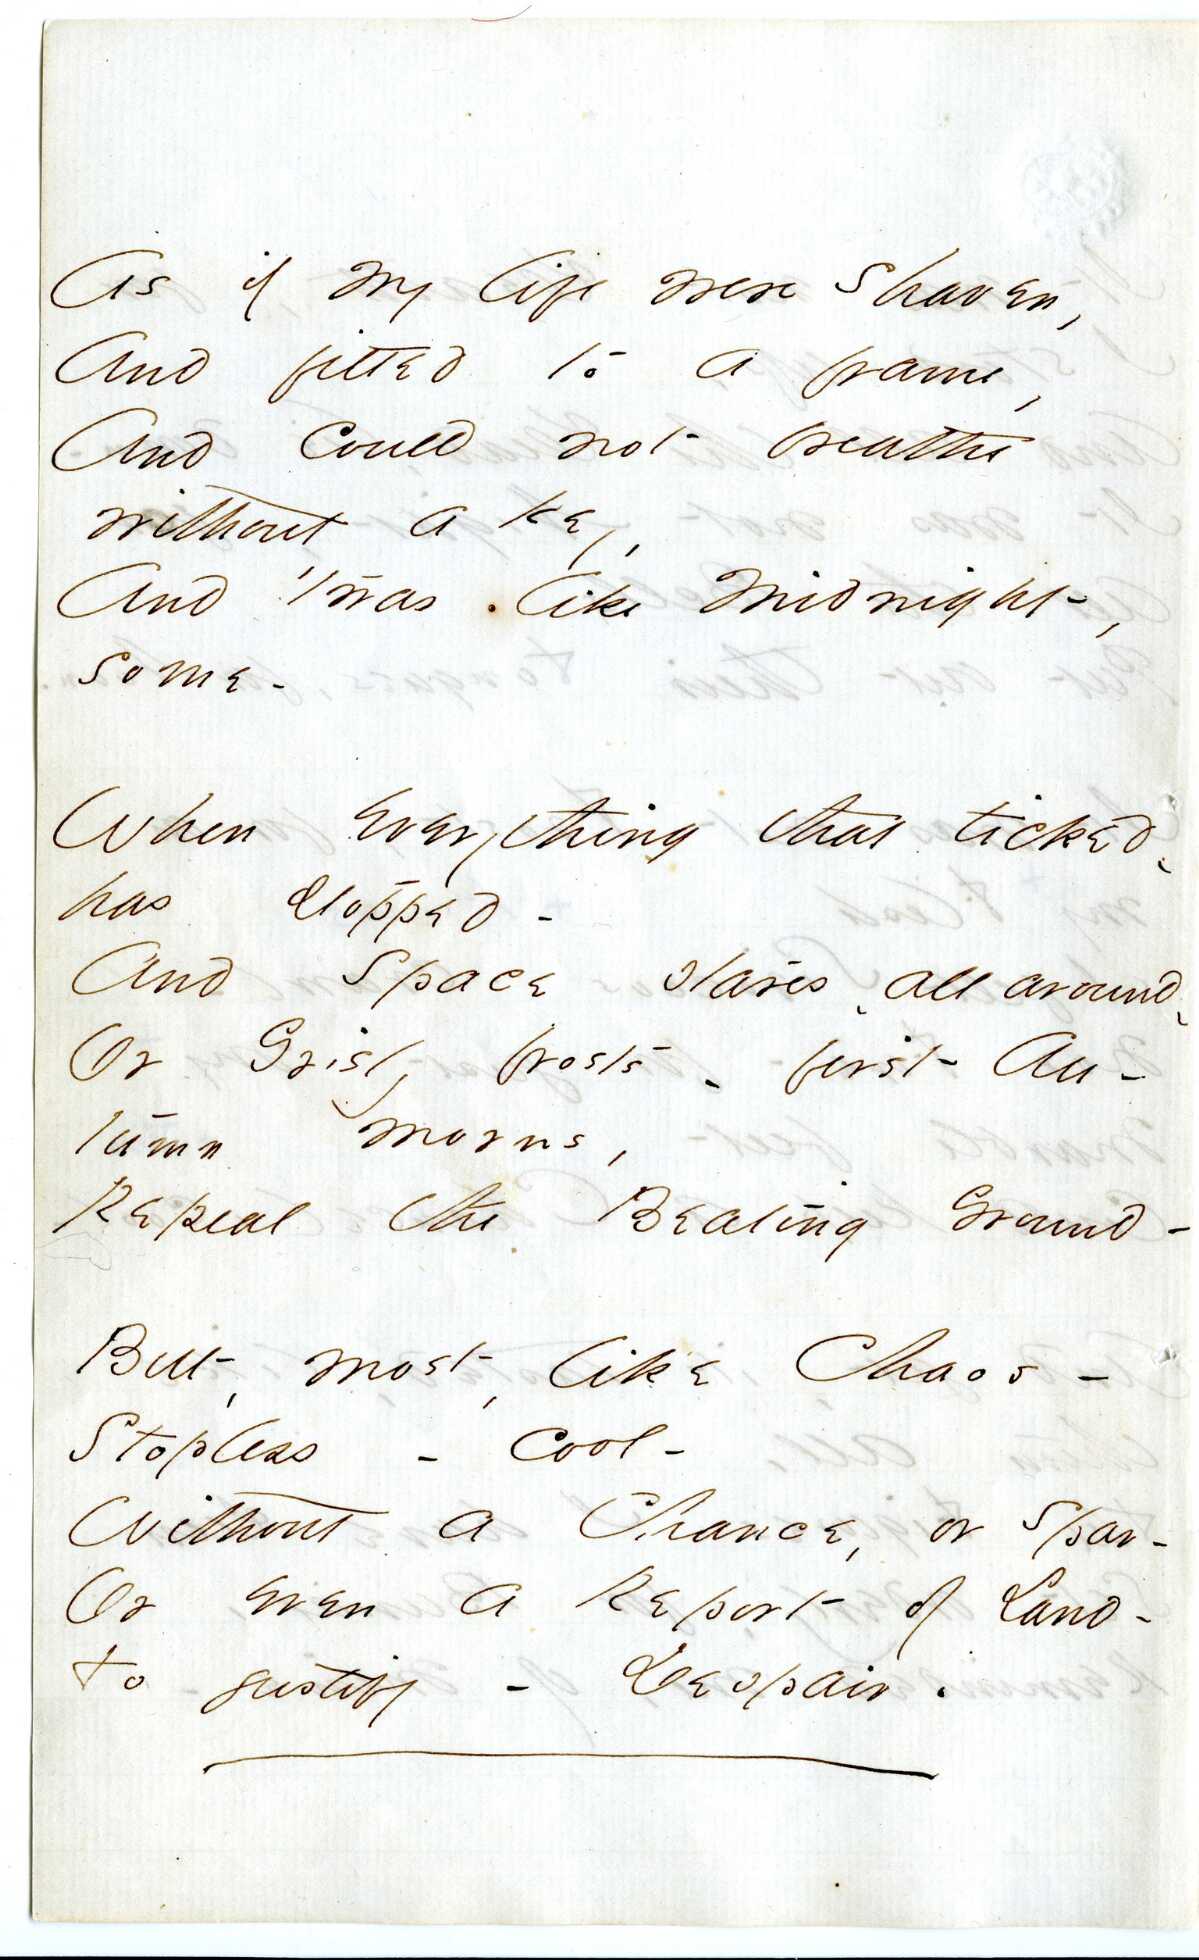 As if my life were shaven,
And fitted to a frame,
And could not breathe
without a key,
And 'twas like Midnight,
some -
When everything that ticked,
has stopped -
And Space stares, all around,
Or Grisly frosts - first Au-
tumn morns,
Repeal the Beating Ground -
But, most, like Chaos -
Stopless - cool -
Without a Chance, or Spar -
Or even a Report of Land -
To justify - Despair.